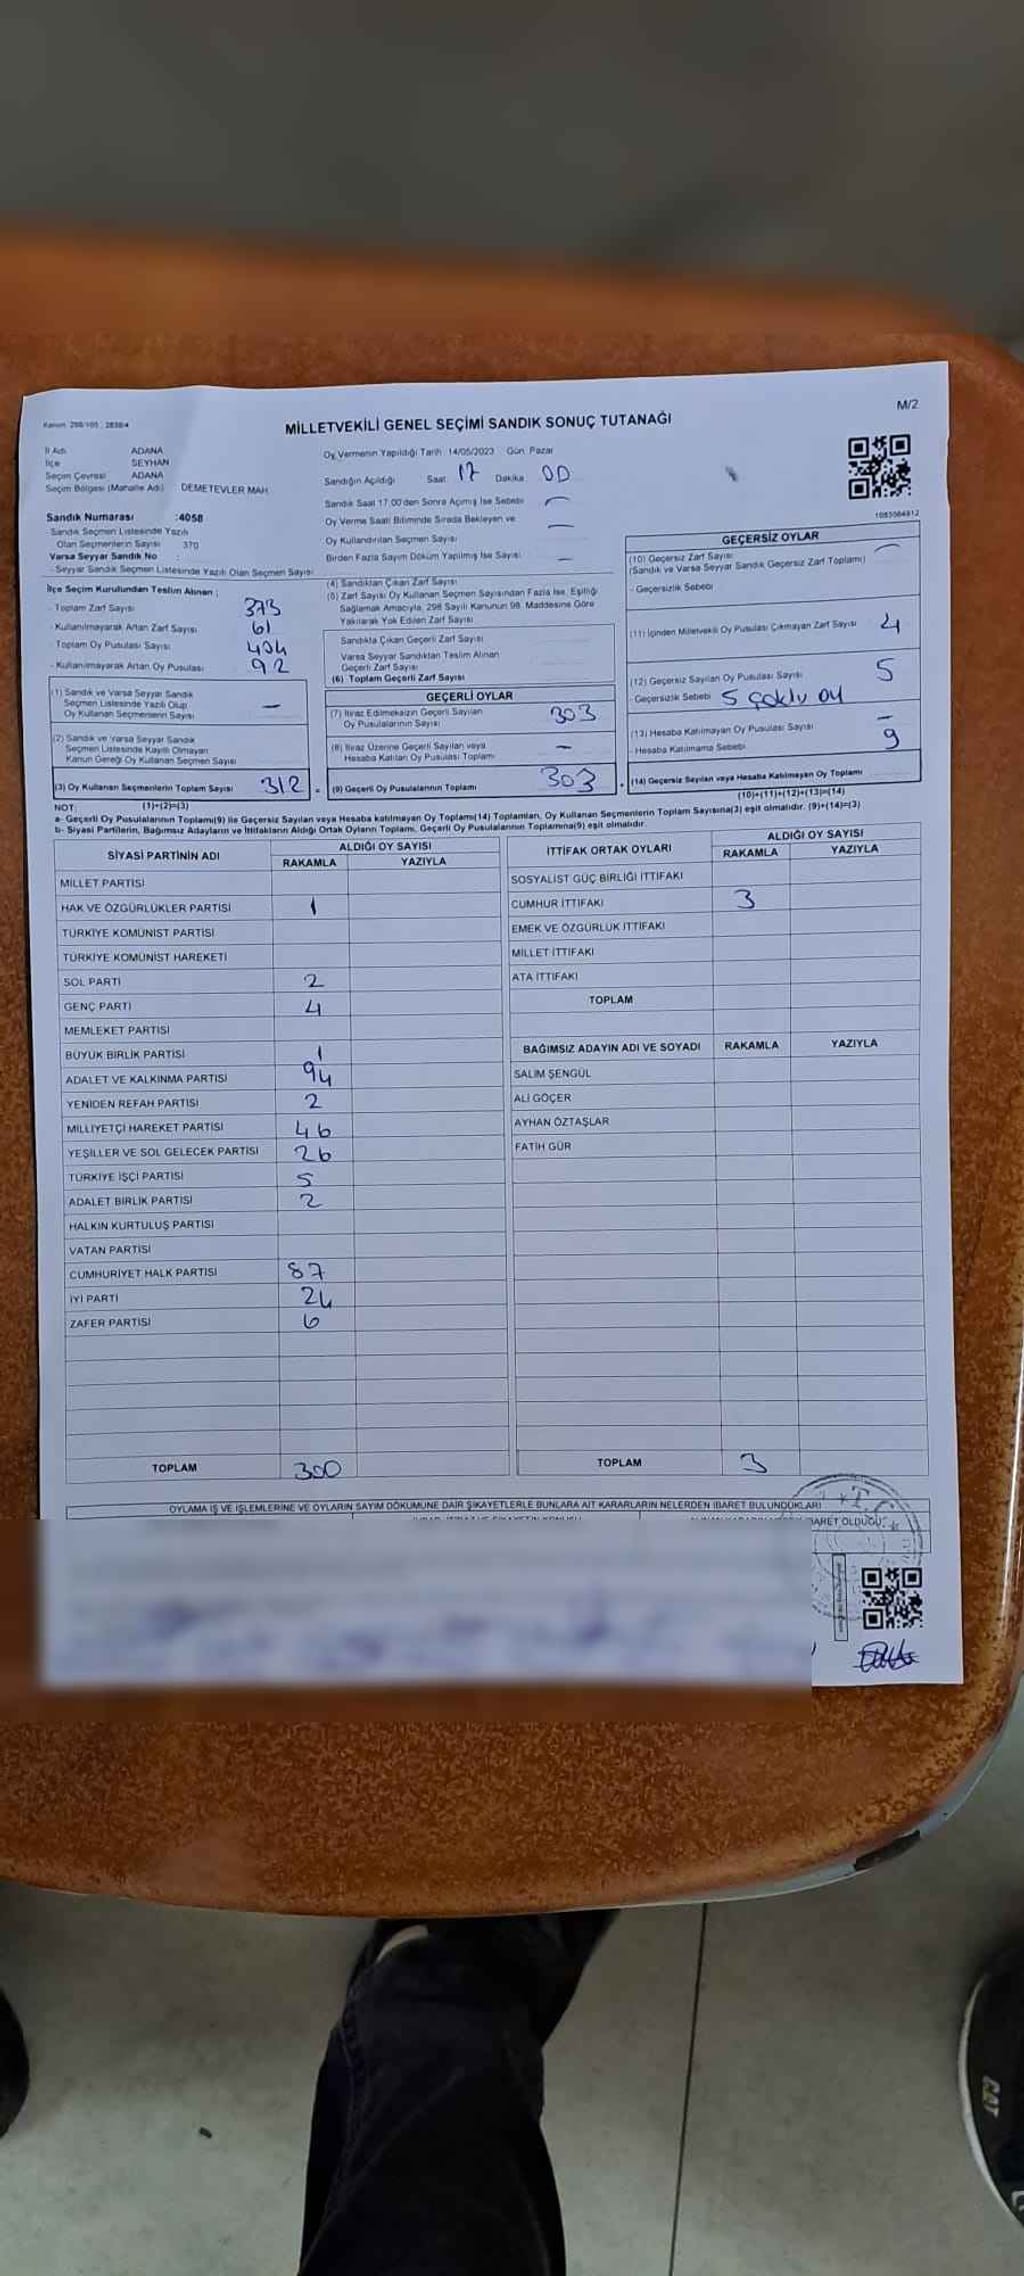 Kanun: 298/105 , 2839/4
M/2
MİLLETVEKİLİ GENEL SEÇİMİ SANDIK SONUÇ TUTANAĞI
İl Adı ADANA
İlçe SEYHAN
Seçim Çevresi ADANA
Seçim Bölgesi (Mahalle Adı) DEMETEVLER MAH.
Sandık Numarası :4058
- Sandık Seçmen Listesinde Yazılı
Olan Seçmenlerin Sayısı 370
Varsa Seyyar Sandık No :
- Seyyar Sandık Seçmen Listesinde Yazılı Olan Seçmen Sayısı
İlçe Seçim Kurulundan Teslim Alınan ;
- Toplam Zarf Sayısı 373
- Kullanılmayarak Artan Zarf Sayısı 61
- Toplam Oy Pusulası Sayısı 404
- Kullanılmayarak Artan Oy Pusulası 92
(1) Sandık ve Varsa Seyyar Sandık
Seçmen Listesinde Yazılı Olup
Oy Kullanan Seçmenlerin Sayısı —
(2) Sandık ve Varsa Seyyar Sandık
Seçmen Listesinde Kayıtlı Olmayan
Kanun Gereği Oy Kullanan Seçmen Sayısı
(3) Oy Kullanan Seçmenlerin Toplam Sayısı 312
Oy Vermenin Yapıldığı Tarih 14/05/2023 Gün Pazar
Sandığın Açıldığı Saat 17 Dakika 00
Sandık Saat 17:00'den Sonra Açılmış İse Sebebi —
Oy Verme Saati Bitiminde Sırada Bekleyen ve
Oy Kullandırılan Seçmen Sayısı —
Birden Fazla Sayım Döküm Yapılmış İse Sayısı —
(4) Sandıktan Çıkan Zarf Sayısı
(5) Zarf Sayısı Oy Kullanan Seçmen Sayısından Fazla İse, Eşitliği
Sağlamak Amacıyla, 298 Sayılı Kanunun 98. Maddesine Göre
Yakılarak Yok Edilen Zarf Sayısı
Sandıkta Çıkan Geçerli Zarf Sayısı
Varsa Seyyar Sandıktan Teslim Alınan
Geçerli Zarf Sayısı
(6) Toplam Geçerli Zarf Sayısı
GEÇERLİ OYLAR
(7) İtiraz Edilmeksizin Geçerli Sayılan
Oy Pusulalarının Sayısı 303
(8) İtiraz Üzerine Geçerli Sayılan veya
Hesaba Katılan Oy Pusulası Toplamı —
(9) Geçerli Oy Pusulalarının Toplamı 303
GEÇERSİZ OYLAR
(10) Geçersiz Zarf Sayısı —
(Sandık ve Varsa Seyyar Sandık Geçersiz Zarf Toplamı)
- Geçersizlik Sebebi
(11) İçinden Milletvekili Oy Pusulası Çıkmayan Zarf Sayısı 4
(12) Geçersiz Sayılan Oy Pusulası Sayısı 5
- Geçersizlik Sebebi 5 çoklu oy
(13) Hesaba Katılmayan Oy Pusulası Sayısı —
- Hesaba Katılmama Sebebi 9
(14) Geçersiz Sayılan veya Hesaba Katılmayan Oy Toplamı
(10)+(11)+(12)+(13)=(14)
NOT: (1)+(2)=(3)
a- Geçerli Oy Pusulalarının Toplamı(9) ile Geçersiz Sayılan veya Hesaba katılmayan Oy Toplamı(14) Toplamları, Oy Kullanan Seçmenlerin Toplam Sayısına(3) eşit olmalıdır. (9)+(14)=(3)
b- Siyasi Partilerin, Bağımsız Adayların ve İttifakların Aldığı Ortak Oyların Toplamı, Geçerli Oy Pusulalarının Toplamına(9) eşit olmalıdır.
SİYASİ PARTİNİN ADI ALDIĞI OY SAYISI
RAKAMLA YAZIYLA
MİLLET PARTİSİ
HAK VE ÖZGÜRLÜKLER PARTİSİ 1
TÜRKİYE KOMÜNİST PARTİSİ
TÜRKİYE KOMÜNİST HAREKETİ
SOL PARTİ 2
GENÇ PARTİ 4
MEMLEKET PARTİSİ
BÜYÜK BİRLİK PARTİSİ 1
ADALET VE KALKINMA PARTİSİ 94
YENİDEN REFAH PARTİSİ 2
MİLLİYETÇİ HAREKET PARTİSİ 46
YEŞİLLER VE SOL GELECEK PARTİSİ 26
TÜRKİYE İŞÇİ PARTİSİ 5
ADALET BİRLİK PARTİSİ 2
HALKIN KURTULUŞ PARTİSİ
VATAN PARTİSİ
CUMHURİYET HALK PARTİSİ 87
İYİ PARTİ 24
ZAFER PARTİSİ 6
TOPLAM 300
İTTİFAK ORTAK OYLARI ALDIĞI OY SAYISI
RAKAMLA YAZIYLA
SOSYALİST GÜÇ BİRLİĞİ İTTİFAKI
CUMHUR İTTİFAKI 3
EMEK VE ÖZGÜRLÜK İTTİFAKI
MİLLET İTTİFAKI
ATA İTTİFAKI
TOPLAM
BAĞIMSIZ ADAYIN ADI VE SOYADI RAKAMLA YAZIYLA
SALİM ŞENGÜL
ALİ GÖÇER
AYHAN ÖZTAŞLAR
FATİH GÜR
TOPLAM 3
OYLAMA İŞ VE İŞLEMLERİNE VE OYLARIN SAYIM DÖKÜMÜNE DAİR ŞİKAYETLERLE BUNLARA AİT KARARLARIN NELERDEN İBARET BULUNDUKLARI
İBARET OLDUĞU
T.C.
CAT